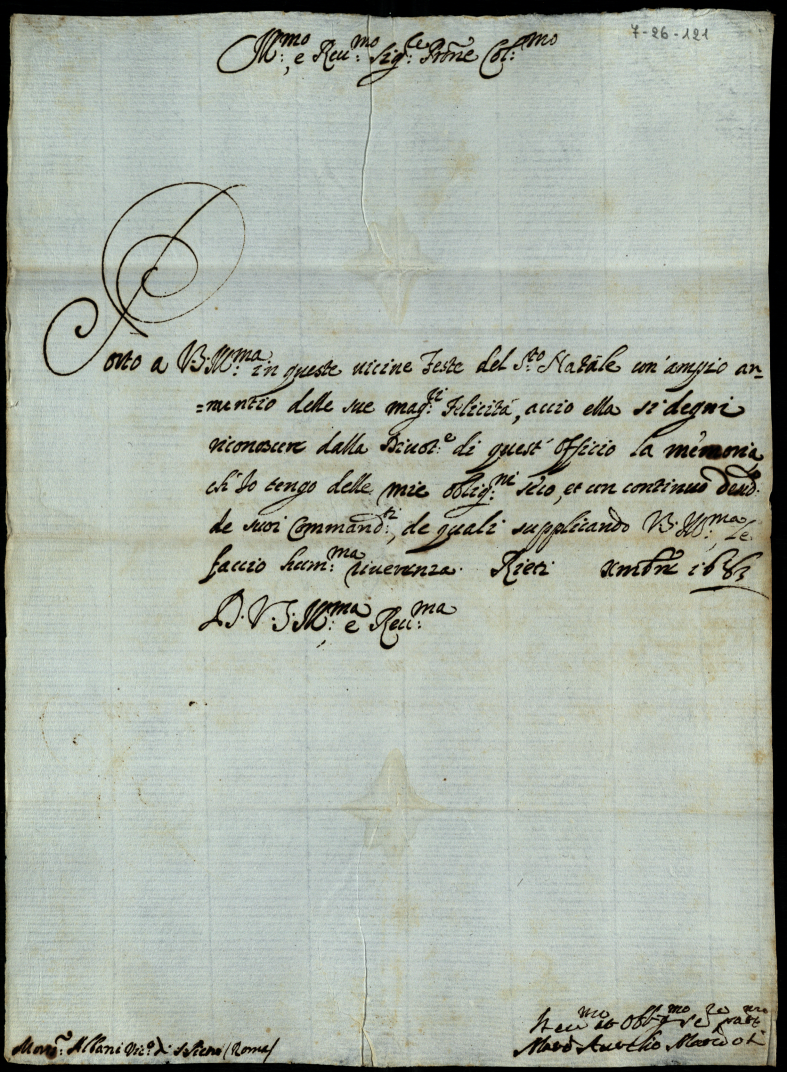 7-26-121
Ill:mo, e Reu:mo Sig:re Prone Col:mo
Porto a V.S. Ill:ma in queste uicine Feste del S:to Natale un'ampio an=
=nuntio delle sue mag:ri Felicità, accio ella si degni
riconoscere dalla Diuot:e di quest'officio la memoria,
ch'Io tengo delle mie oblig:ni seco, et un continuo
de suoi Command:ti, de quali supplicando V.S. Ill:ma, Le
faccio hum:ma riuerenza. Rieti xmbre 1683
D. V. S. Ill:ma e Reu:ma
Hu et Obb
Marc Aurelio
Mons:r Albani Vic:o di S Pietro (Roma)